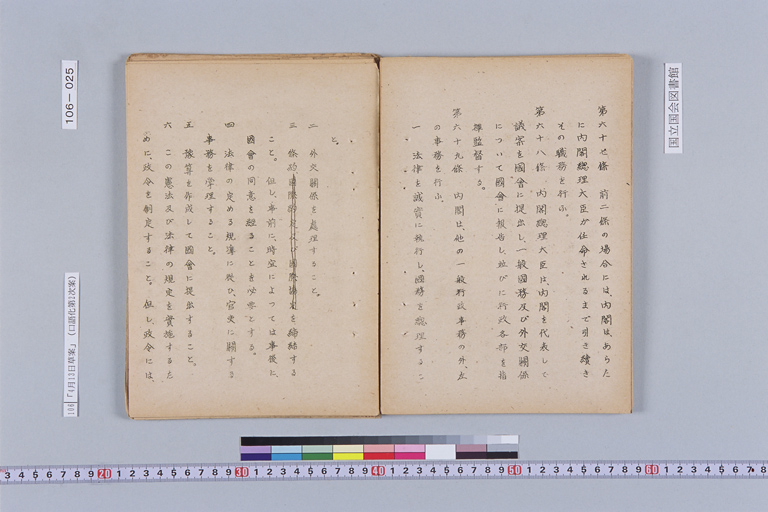 第六十七條　前二條の場合には、内閣は、あらた
に内閣總理大臣が任命されるまで引き續き
その職務を行ふ。
第六十八條　内閣總理大臣は、内閣を代表して
議案を國會に提出し、一般國務及び外交關係
について國會に報告し、並びに行政各部を指
揮監督する。
第六十九條　内閣は、他の一般行政事務の外、左
の事務を行ふ。
一　法律を誠實に執行し、國務を總理するこ
と。
二　外交關係を處理すること。
三　條約、國際約定及び國際協定を締結する
こと。但し、事前に、時宜によつては事後に、
國會の同意を經ることを必要とする。
四　法律の定める規準に從ひ、官吏に關する
事務を掌理すること。
五　豫算を作成して國會に提出すること。
六　この憲法及び法律の規定を實施するた
めに、政令を制定すること。但し、政令には、
国立国会図書館
106-025
106「4月13日草案」(口語化第2次案)
3 4 5 6 7 8 9 20 1 2 3 4 5 6 7 8 9 30 1 2 3 4 5 6 7 8 9 40 1 2 3 4 5 6 7 8 9 50 1 2 3 4 5 6 7 8 9 60 1 2 3 4 5 6 7 8